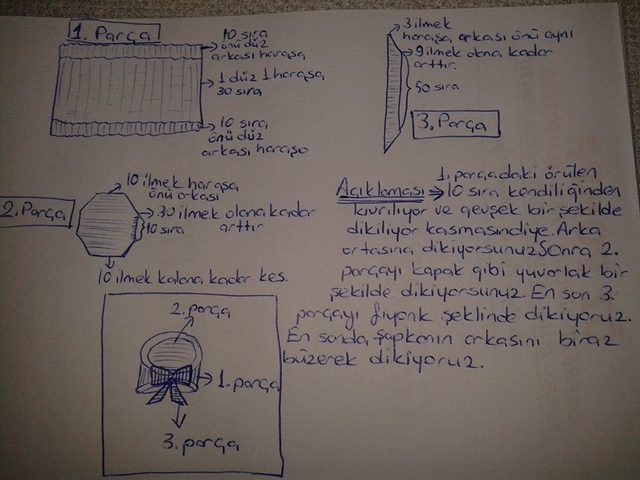 1. Parça
10 sıra
önü düz
arkası haraşa
1 düz 1 haraşa
30 sıra
10 sıra
önü düz
arkası haraşa
3 ilmek
haraşa arkası önü aynı
9 ilmek olana kadar
arttır.
50 sıra
3. Parça
2. Parça
10 ilmek haraşa
önü arkası
30 ilmek olana kadar
arttır
10 sıra
10 ilmek kalana kadar kes.
Açıklaması → 1. parçadaki örülen
10 sıra kendiliğinden
kıvrılıyor ve gevşek bir şekilde
dikiliyor kasmasındiye. Arka
ortasına dikiyorsunuz. Sonra 2.
parçayı kapak gibi yuvorlak bir
şekilde dikiyorsunuz. En son 3.
parçayı fiyonk şeklinde dikiyoruz.
En sonda şapkanın arkasını biraz
büzerek dikiyoruz.
2. parça
1. parça
3. parça